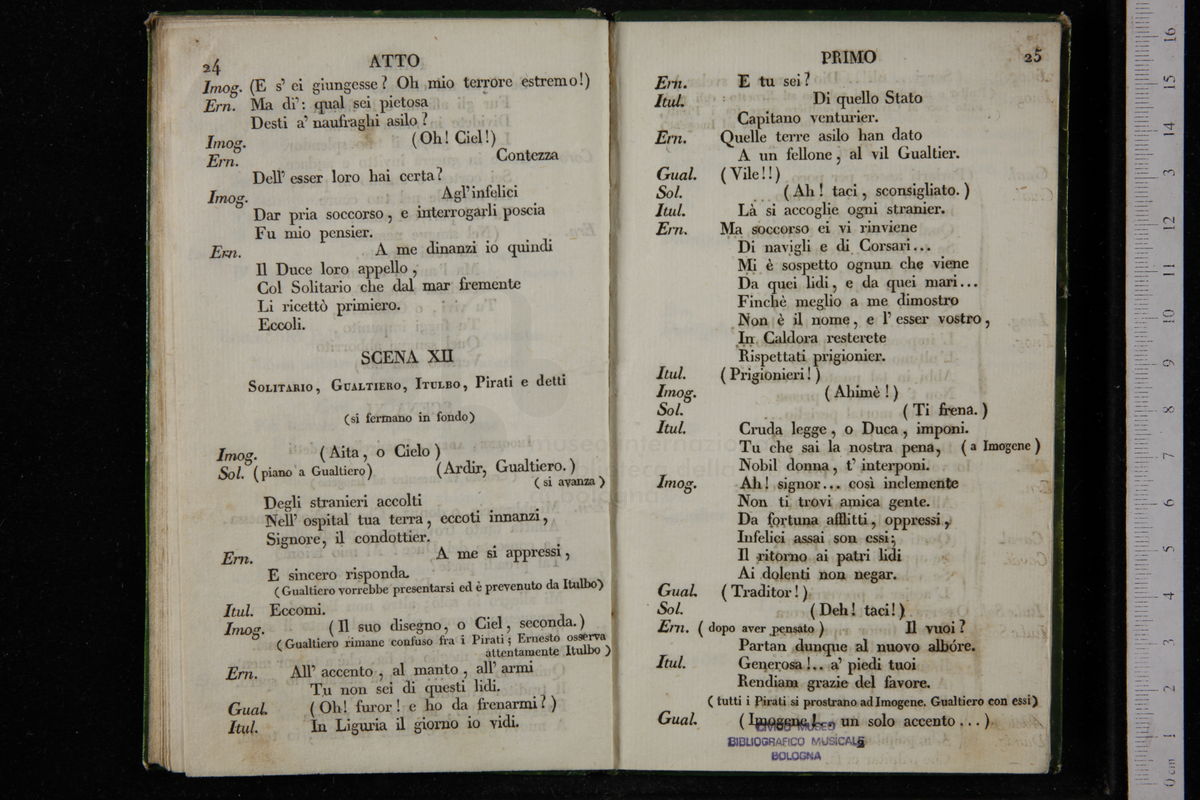 24 ATTO
Imog. (E s' ei giungesse? Oh mio terrore estremo!)
Ern. Ma di': qual sei pietosa
Desti a' naufraghi asilo?
Imog. (Oh! Ciel!)
Ern. Contezza
Dell' esser loro hai certa?
Imog. Agl' infelici
Dar pria soccorso, e interrogarli poscia
Fu mio pensier.
Ern. A me dinanzi io quindi
Il Duce loro appello,
Col Solitario che dal mar fremente
Li ricettò primiero.
Eccoli.
SCENA XII
SOLITARIO, GUALTIERO, ITULBO, Pirati e detti
(si fermano in fondo)
Imog. (Aita, o Cielo)
Sol. (piano a Gualtiero) (Ardir, Gualtiero.)
(si avanza)
Degli stranieri accolti
Nell' ospital tua terra, eccoti innanzi,
Signore, il condottier.
Ern. A me si appressi,
E sincero risponda.
(Gualtiero vorrebbe presentarsi ed è prevenuto da Itulbo)
Itul. Eccomi.
Imog. (Il suo disegno, o Ciel, seconda.)
(Gualtiero rimane confuso fra i Pirati; Ernesto osserva
attentamente Itulbo)
Ern. All' accento, al manto, all' armi
Tu non sei di questi lidi.
Gual. (Oh! furor! e ho da frenarmi?)
Itul. In Liguria il giorno io vidi.
PRIMO 25
Ern. E tu sei?
Itul. Di quello Stato
Capitano venturier.
Ern. Quelle terre asilo han dato
A un fellone, al vil Gualtier.
Gual. (Vile!!)
Sol. (Ah! taci, sconsigliato.)
Itul. Là si accoglie ogni stranier.
Ern. Ma soccorso ei vi rinviene
Di navigli e di Corsari...
Mi è sospetto ognun che viene
Da quei lidi, e da quei mari...
Finchè meglio a me dimostro
Non è il nome, e l' esser vostro,
In Caldora resterete
Rispettati prigionier.
Itul. (Prigionieri!)
Imog. (Ahimè!)
Sol. (Ti frena.)
Itul. Cruda legge, o Duca, imponi.
Tu che sai la nostra pena, (a Imogene)
Nobil donna, t' interponi.
Imog. Ah! signor... così inclemente
Non ti trovi amica gente.
Da fortuna afflitti, oppressi,
Infelici assai son essi;
Il ritorno ai patri lidi
Ai dolenti non negar.
Gual. (Traditor!)
Sol. (Deh! taci!)
Ern. (dopo aver pensato) Il vuoi?
Partan dunque al nuovo albóre.
Itul. Generosa!.. a' piedi tuoi
Rendiam grazie del favore.
(tutti i Pirati si prostrano ad Imogene, Gualtiero con essi)
Gual. (Imogene!... un solo accento...)
CIVICO MUSEO
BIBLIOGRAFICO MUSICALE
BOLOGNA